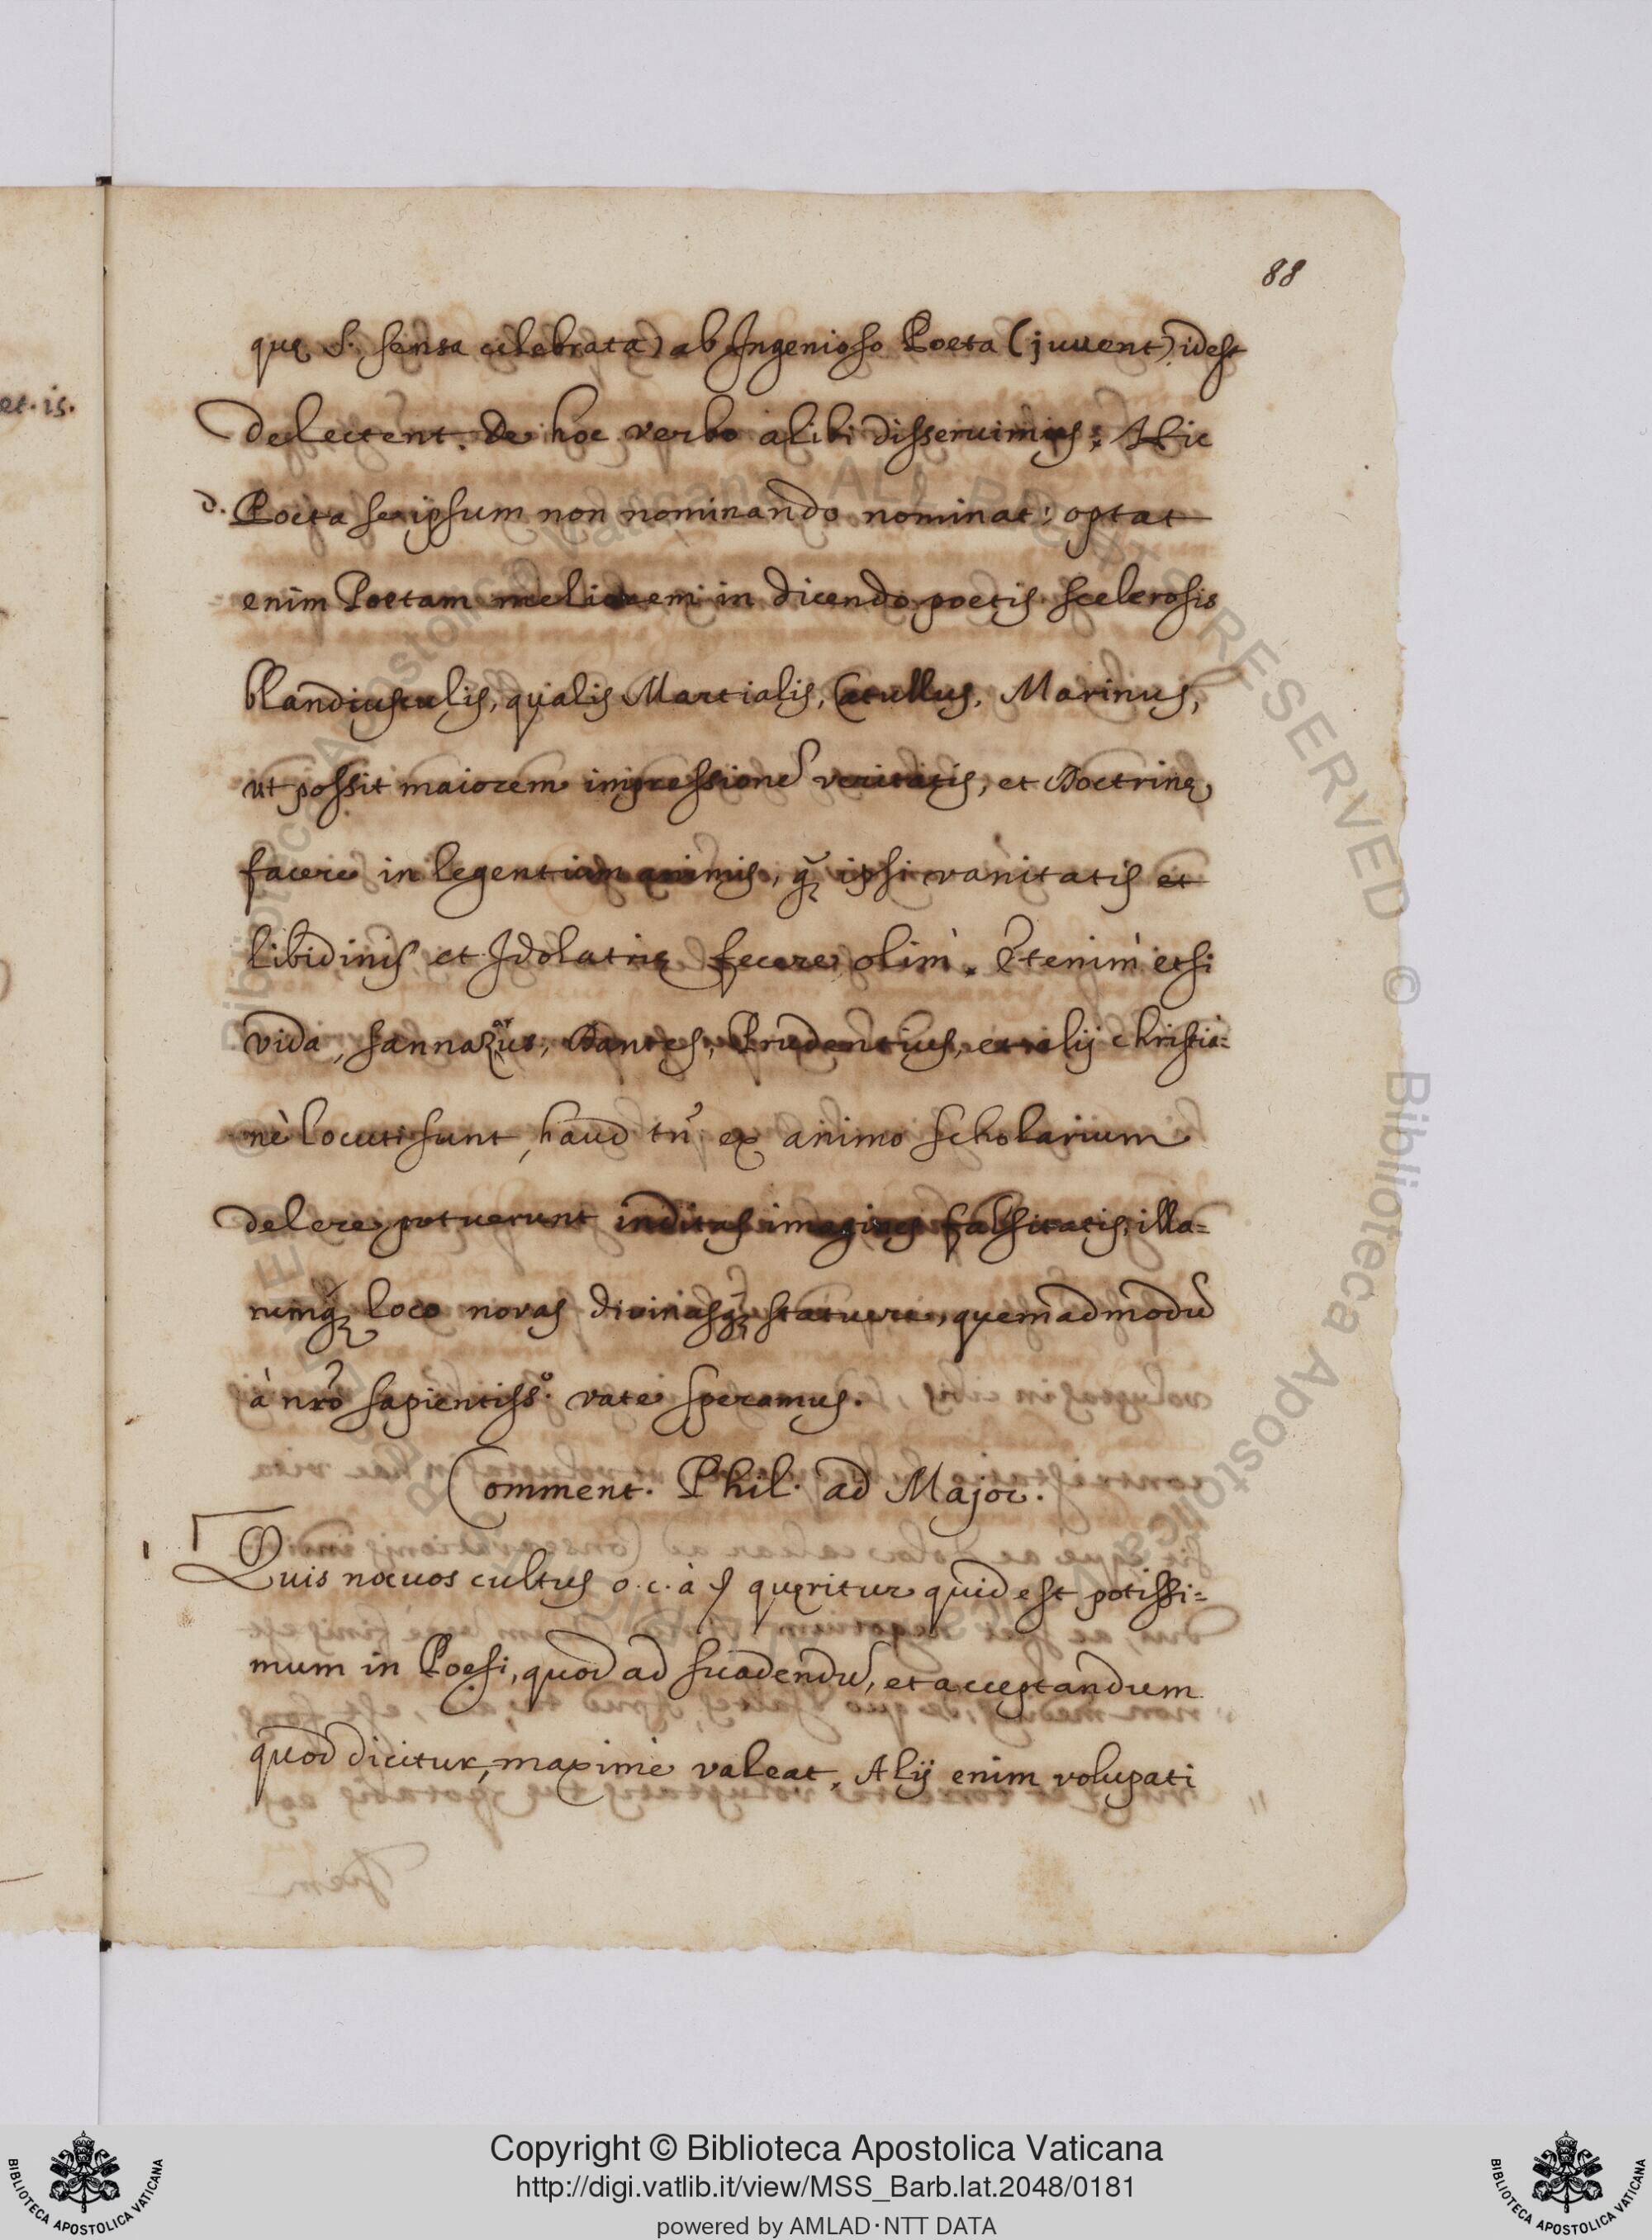 88
et. is.
quę S. sensa celebrata) ab Ingenioso Poeta (juuent) idest
delectent. De hoc verbo alibi disseruimus: Hic
d. Poeta seipsum non nominando nominat; optat
enim Poetam meliorem in dicendo poetis scelerosis
blandiusculis, qualis Martialis, Catullus, Marinus,
ut possit maiorem impressionē veritatis, et Doctrinę
facere in legentium animis, q̃ ipsi vanitatis et
libidinis et Idolatrię fecere olim. Etenim etsi
vida, sannazarius, Dantes, Prudentius, et alij christia=
nè locuti sunt, haud tñ ex animo scholarium
delere potuerunt inditas imagines falsitatis, illa=
rumq̃ loco novas divinasq̃ statuere, quemadmodū
à nr̃o sapientiss.º vate speramus.
Comment. Phil. ad Major.
1 Quis nouos cultus o.c. à ꝯ quęritur quid est potissi=
mum in Poesi, quod ad suadendū, et acceptandum
quod dicitur, maximè valeat, Alij enim volupati
Copyright © Biblioteca Apostolica Vaticana
http://digi.vatlib.it/view/MSS_Barb.lat.2048/0181
powered by AMLAD·NTT DATA
BIBLIOTECA APOSTOLICA VATICANA
BIBLIOTECA APOSTOLICA VATICANA